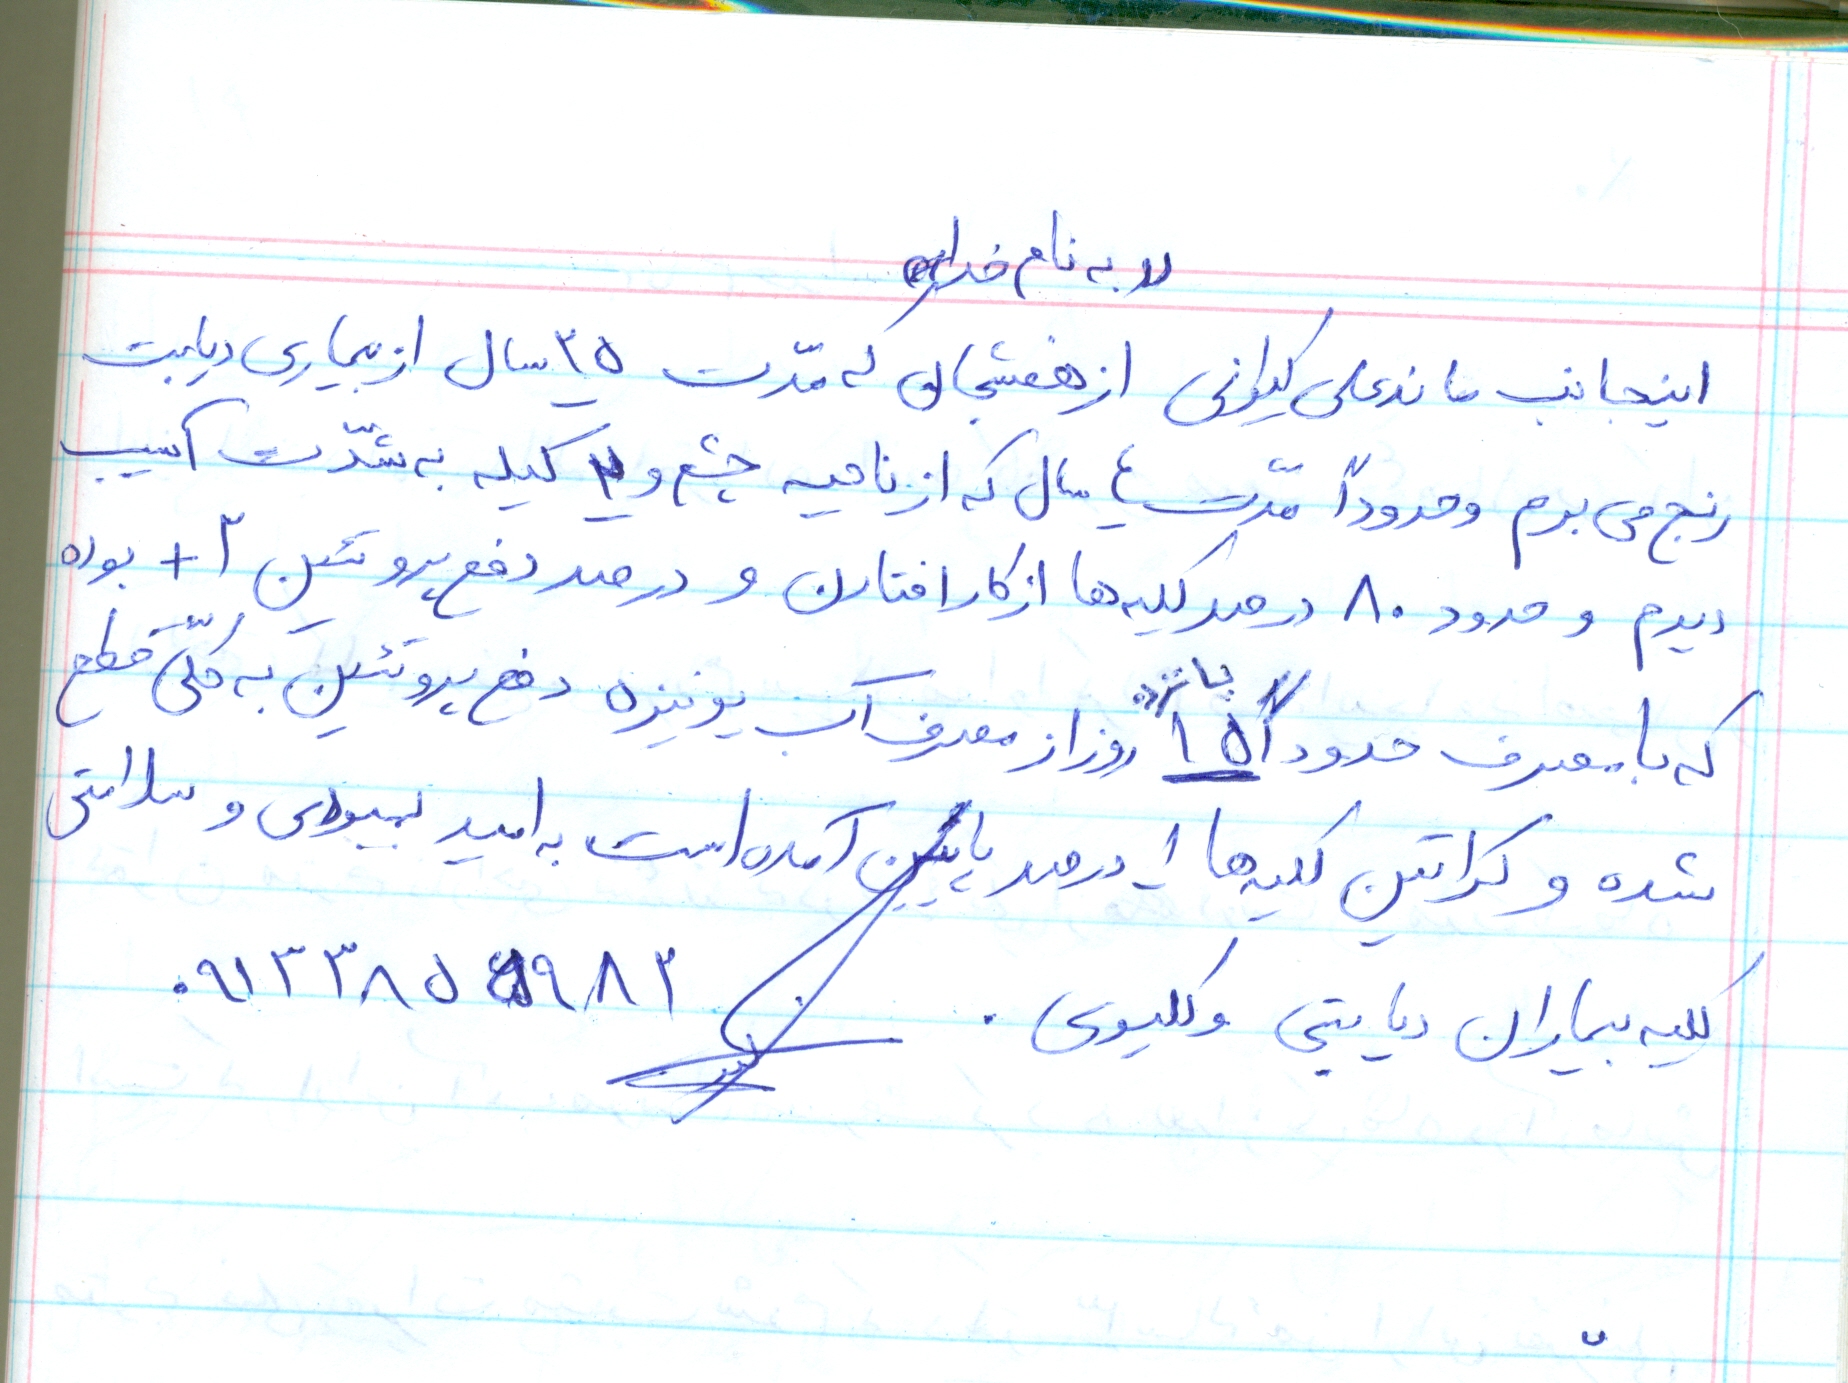 « به نام خدا »
اینجانب ماندعلی کیوانی از هفشجان که مدّت ۳۵ سال از بیماری دیابت
رنج می برم و حدوداً مدّت ٤ سال که از ناحیه چشم و ۲ کیله به شدّت آسیب
دیدم و حدود ۸۰ درصد کلیه ها از کار افتادن و درصد دفع پروتئین ۲+ بوده
که با مصرف حدوداً ۱۵ "پانزده" روز از مصرف آب یونیزه دفع پروتئین به کلّی قطع
شده و کراتین کلیه ها ۱ درصد پایین آمده است به امید بهبودی و سلامتی
کلیه بیماران دیابتی و کلیوی .